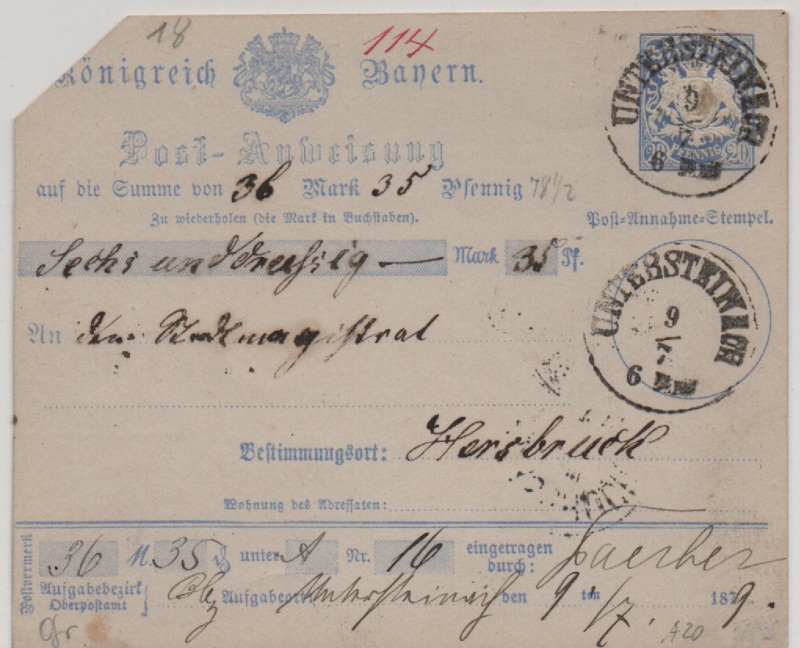 18
114
Königreich Bayern.
Post-Anweisung
auf die Summe von 36 Mark 35 Pfennig 78 1/2
Zu wiederholen (die Mark in Buchstaben).
Sechs und dreißig — Mark 35 Pf.
An dem Stadtmagistrat
Bestimmungsort: Hersbruck
Wohnung des Adressaten:
20 PFENNIG 20
UNTERSTEINACH
9
7
6
Post-Annahme-Stempel.
UNTERSTEINACH
9
7
6
Postvermerk
36 M 35 ₰ unter A Nr. 16 eingetragen durch:
Aufgabebezirk Oberpostamt Aufgabeort Untersteinach den 9 ten /7. 1879.
A20